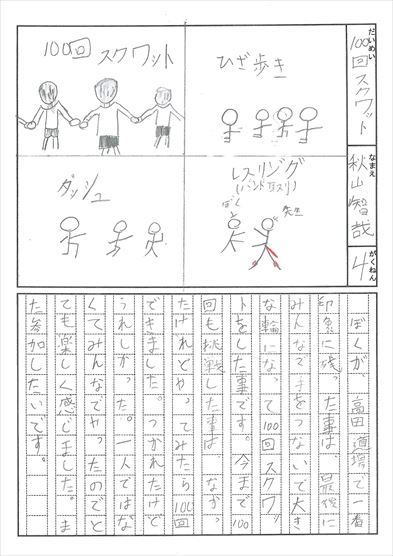 だいめい
100回スクワット
なまえ
秋山智哉
がくねん
4
ひざ歩き
100回スクワット
レスリング
(バンド
先生
ぼく
ダッシュ
ぼくが、高田道場で一番
印象に残った事は、最後に
みんなで手をつないで大き
な輪になって100回スクワッ
トをした事です。今まで100
回も挑戦した事は なかっ
たけれどやってみたら100回
できました。つかれたけど
うれしかった。一人ではな
くてみんなでやったのでと
ても楽しく感じました。ま
た参加したいです。